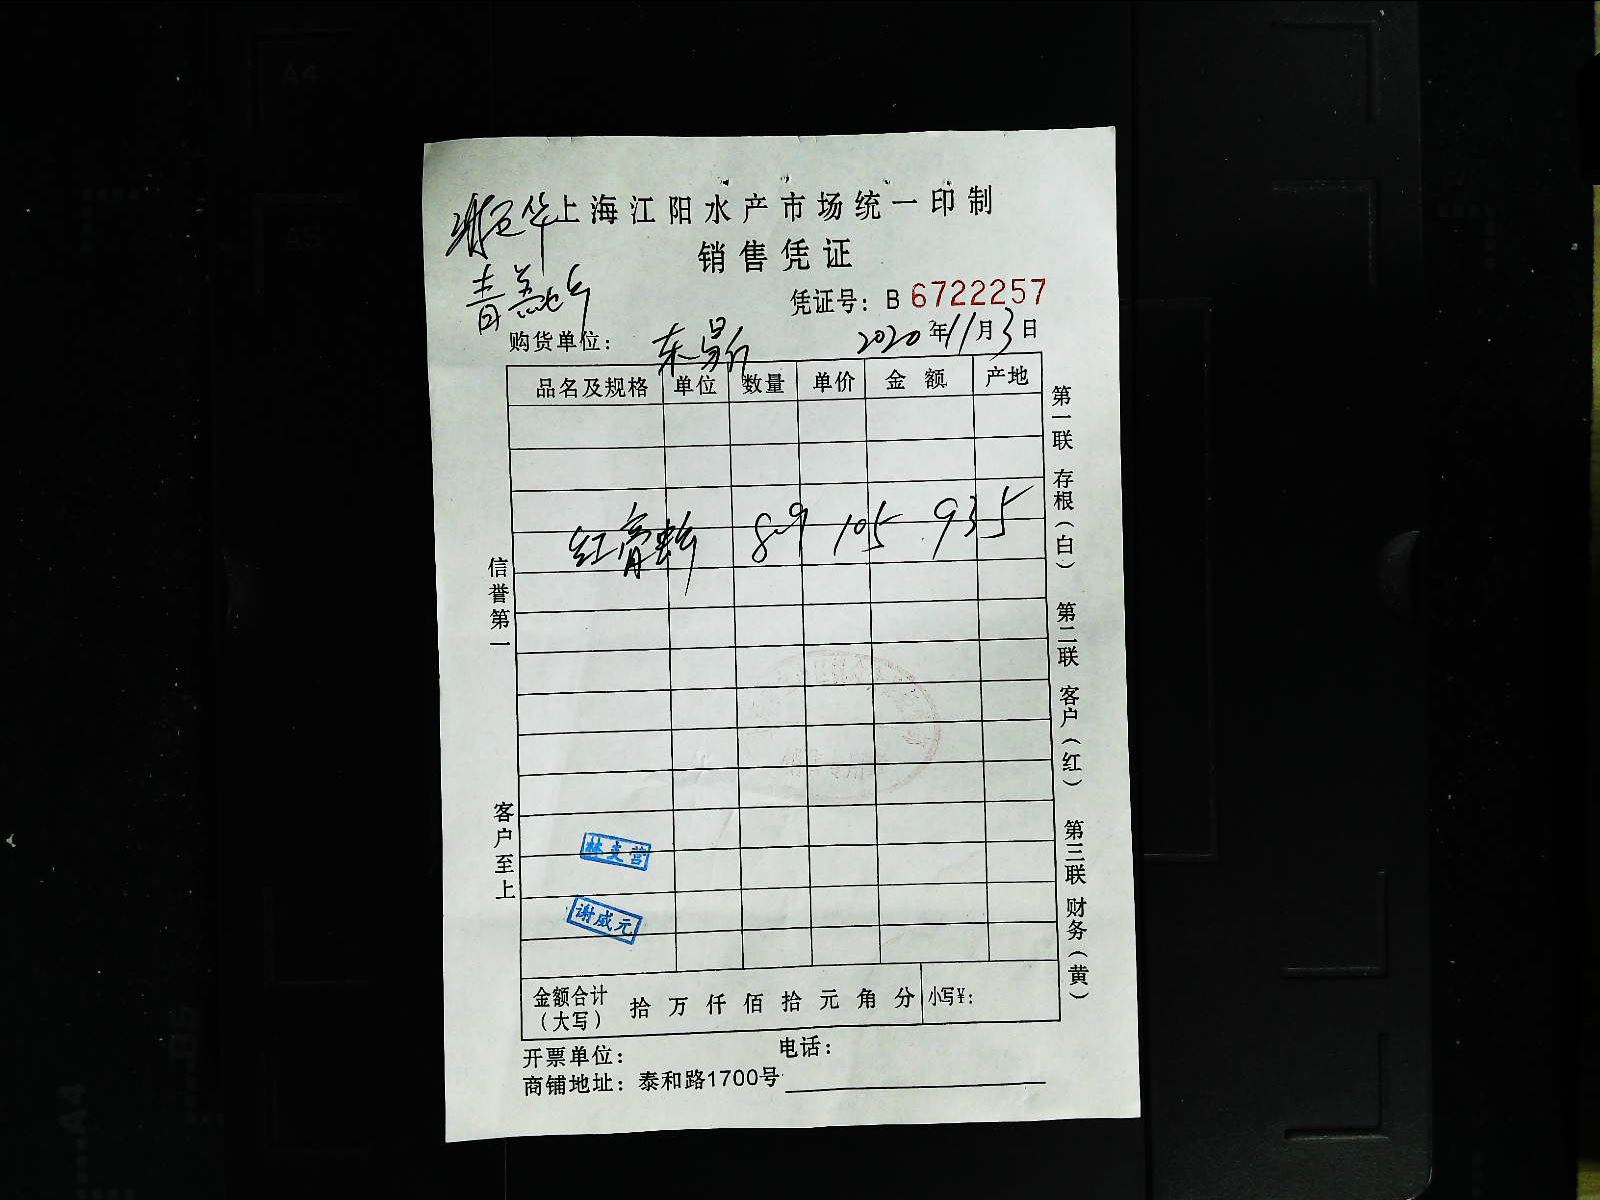 上海江阳水产市场统一印制
销售凭证
凭证号：B 6722257
购货单位：
2020年11月3日
品名及规格 单位 数量 单价 金额 产地
红膏 8.9 105 935
信誉第一
客户至上
第一联 存根（白） 第二联 客户（红） 第三联 财务（黄）
谢威元
金额合计（大写） 拾万仟佰拾元角分 小写¥：
开票单位： 电话：
商铺地址：泰和路1700号